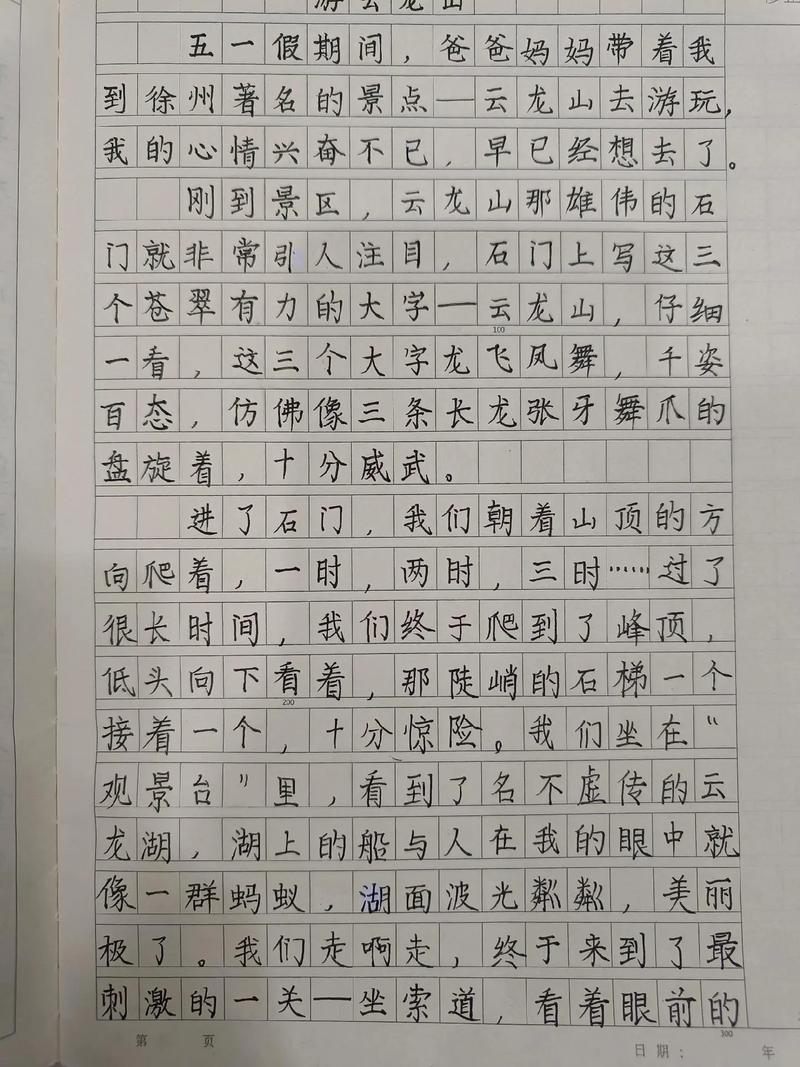 游云龙山
五一假期间，爸爸妈妈带着我
到徐州著名的景点——云龙山去游玩，
我的心情兴奋不已，早已经想去了。
刚到景区，云龙山那雄伟的石
门就非常引人注目，石门上写这三
个苍翠有力的大字——云龙山，仔细
100
一看，这三个大字龙飞凤舞，千姿
百态，仿佛像三条长龙张牙舞爪的
盘旋着，十分威武。
进了石门，我们朝着山顶的方
向爬着，一时，两时，三时……过了
很长时间，我们终于爬到了峰顶，
低头向下看着，那陡峭的石梯一个
200
接着一个，十分惊险。我们坐在“
观景台”里，看到了名不虚传的云
龙湖，湖上的船与人在我的眼中就
像一群蚂蚁，湖面波光粼粼，美丽
极了。我们走啊走，终于来到了最
刺激的一关——坐索道，看着眼前的
300
第 页
日期： 年